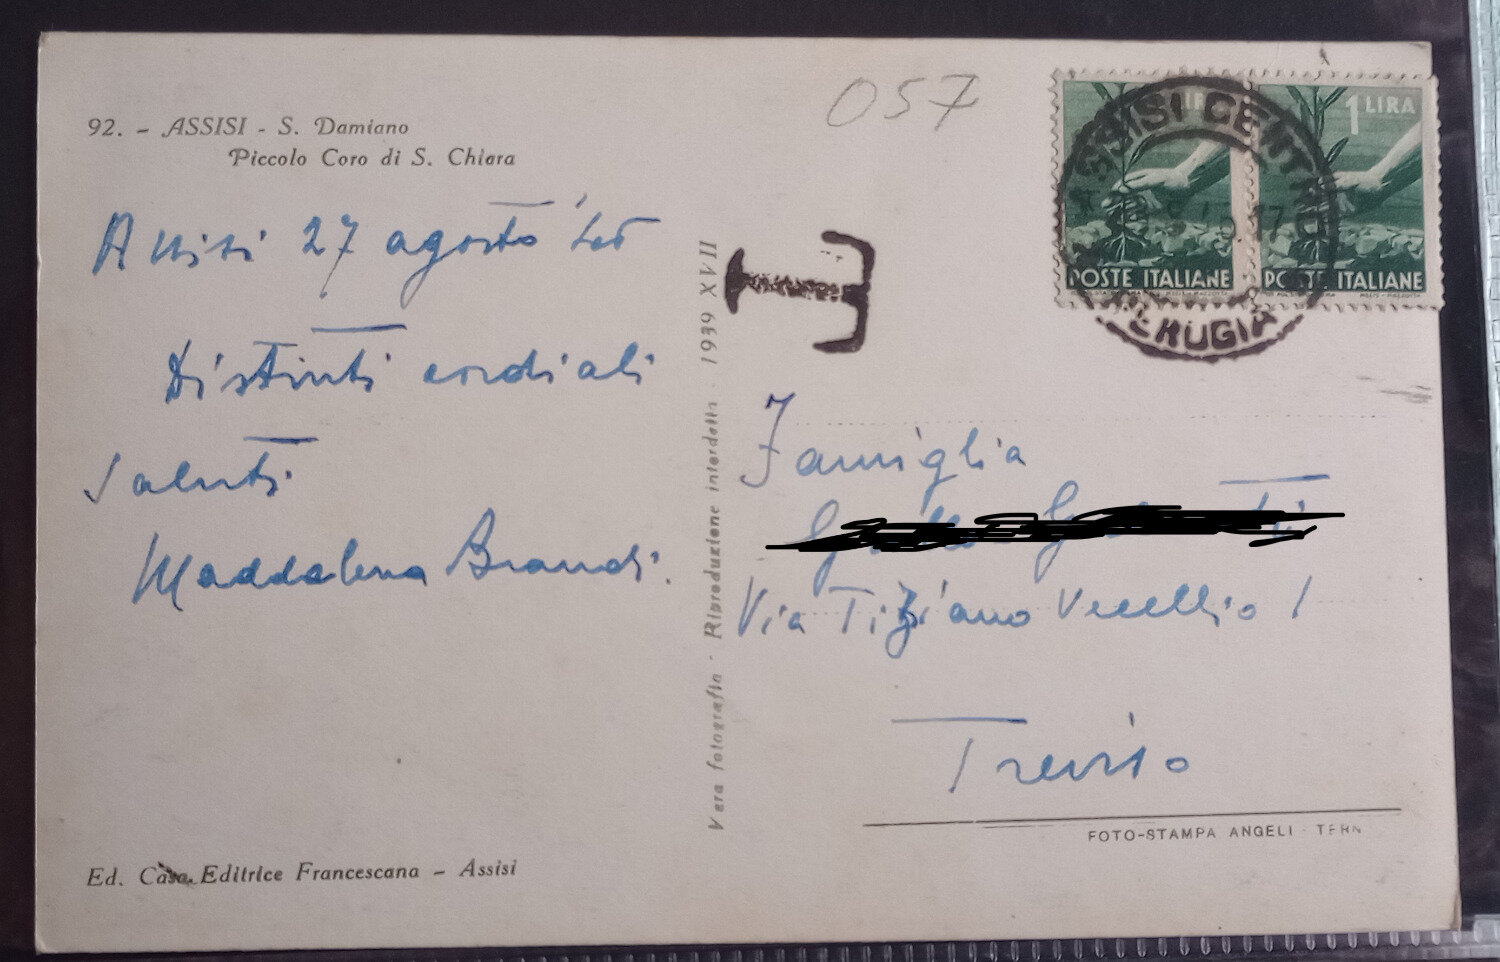 92. - ASSISI - S. Damiano
Piccolo Coro di S. Chiara
Assisi 27 agosto
Distinti cordiali
saluti
Maddalena Brandi.
Ed. Casa Editrice Francescana - Assisi
Vera fotografia - Riproduzione interdetta - 1939 XVII
057
T
ASSISI CENTRO
PERUGIA
1 LIRA
POSTE ITALIANE
POSTE ITALIANE
Famiglia
Via Tiziano Vecellio 1
Treviso
FOTO-STAMPA ANGELI - TERNI